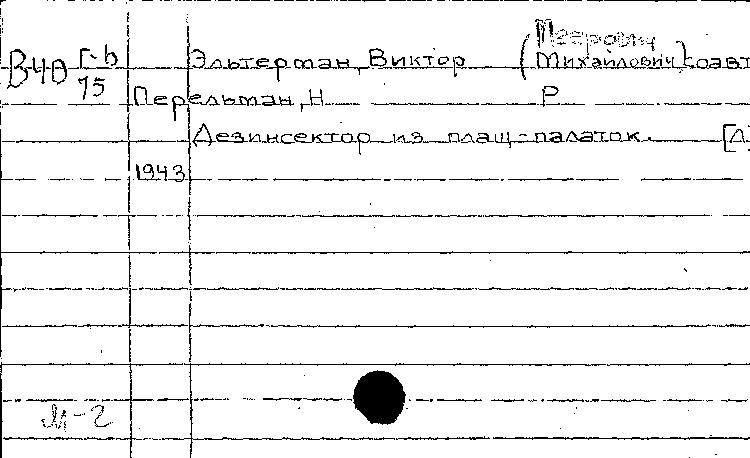 В40 Г-6
75
Эльтерман, Виктор (Петрович
Михайлович), соавт
Перельман, Н Р
Дезинсектор из плащ-палаток. [Л
1943
М-2